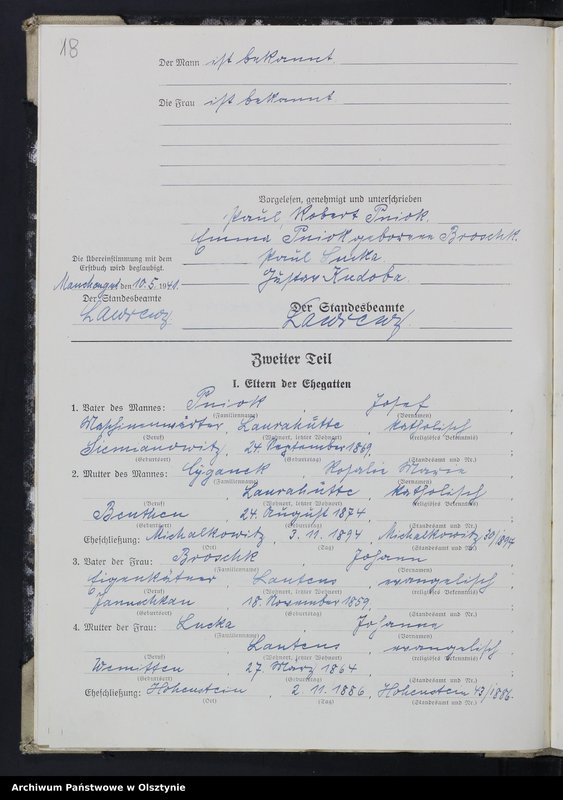 18
Der Mann ist bekannt
Die Frau ist bekannt
Vorgelesen, genehmigt und unterschrieben
Paul Robert Pniok.
Emma Pniok geborene Broschk.
Paul Lucka.
Gustav Kudoba.
Die Übereinstimmung mit dem
Erstbuch wird beglaubigt.
Manchengut den 10. 5. 1941.
Der Standesbeamte
Lawrenz
Der Standesbeamte
Lawrenz.
Zweiter Teil
I. Eltern der Ehegatten
1. Vater des Mannes: Pniok Josef,
(Familienname) (Vornamen)
Maschinenwärter, Laurahütte, katholisch
(Beruf) (Wohnort, letzter Wohnort) (religiöses Bekenntnis)
Siemianowitz, 24. September 1869,
(Geburtsort) (Geburtstag) (Standesamt und Nr.)
2. Mutter des Mannes: Cyganek Rosalie Marie
(Familienname) (Vornamen)
Laurahütte, katholisch
(Beruf) (Wohnort, letzter Wohnort) (religiöses Bekenntnis)
Beuthen, 24. August 1874,
(Geburtsort) (Geburtstag) (Standesamt und Nr.)
Eheschließung: Michalkowitz, 3. 11. 1894, Michalkowitz 30/1894
(Ort) (Tag) (Standesamt und Nr.)
3. Vater der Frau: Broschk, Johann
(Familienname) (Vornamen)
Eigenkätner, Lautens, evangelisch
(Beruf) (Wohnort, letzter Wohnort) (religiöses Bekenntnis)
Januschkau, 18. November 1859,
(Geburtsort) (Geburtstag) (Standesamt und Nr.)
4. Mutter der Frau: Lucka Johanne
(Familienname) (Vornamen)
Lautens, evangelisch
(Beruf) (Wohnort, letzter Wohnort) (religiöses Bekenntnis)
Wemitten, 27. März 1864,
(Geburtsort) (Geburtstag) (Standesamt und Nr.)
Eheschließung: Hohenstein, 2. 11. 1886, Hohenstein 43/1886.
(Ort) (Tag) (Standesamt und Nr.)
Archiwum Państwowe w Olsztynie